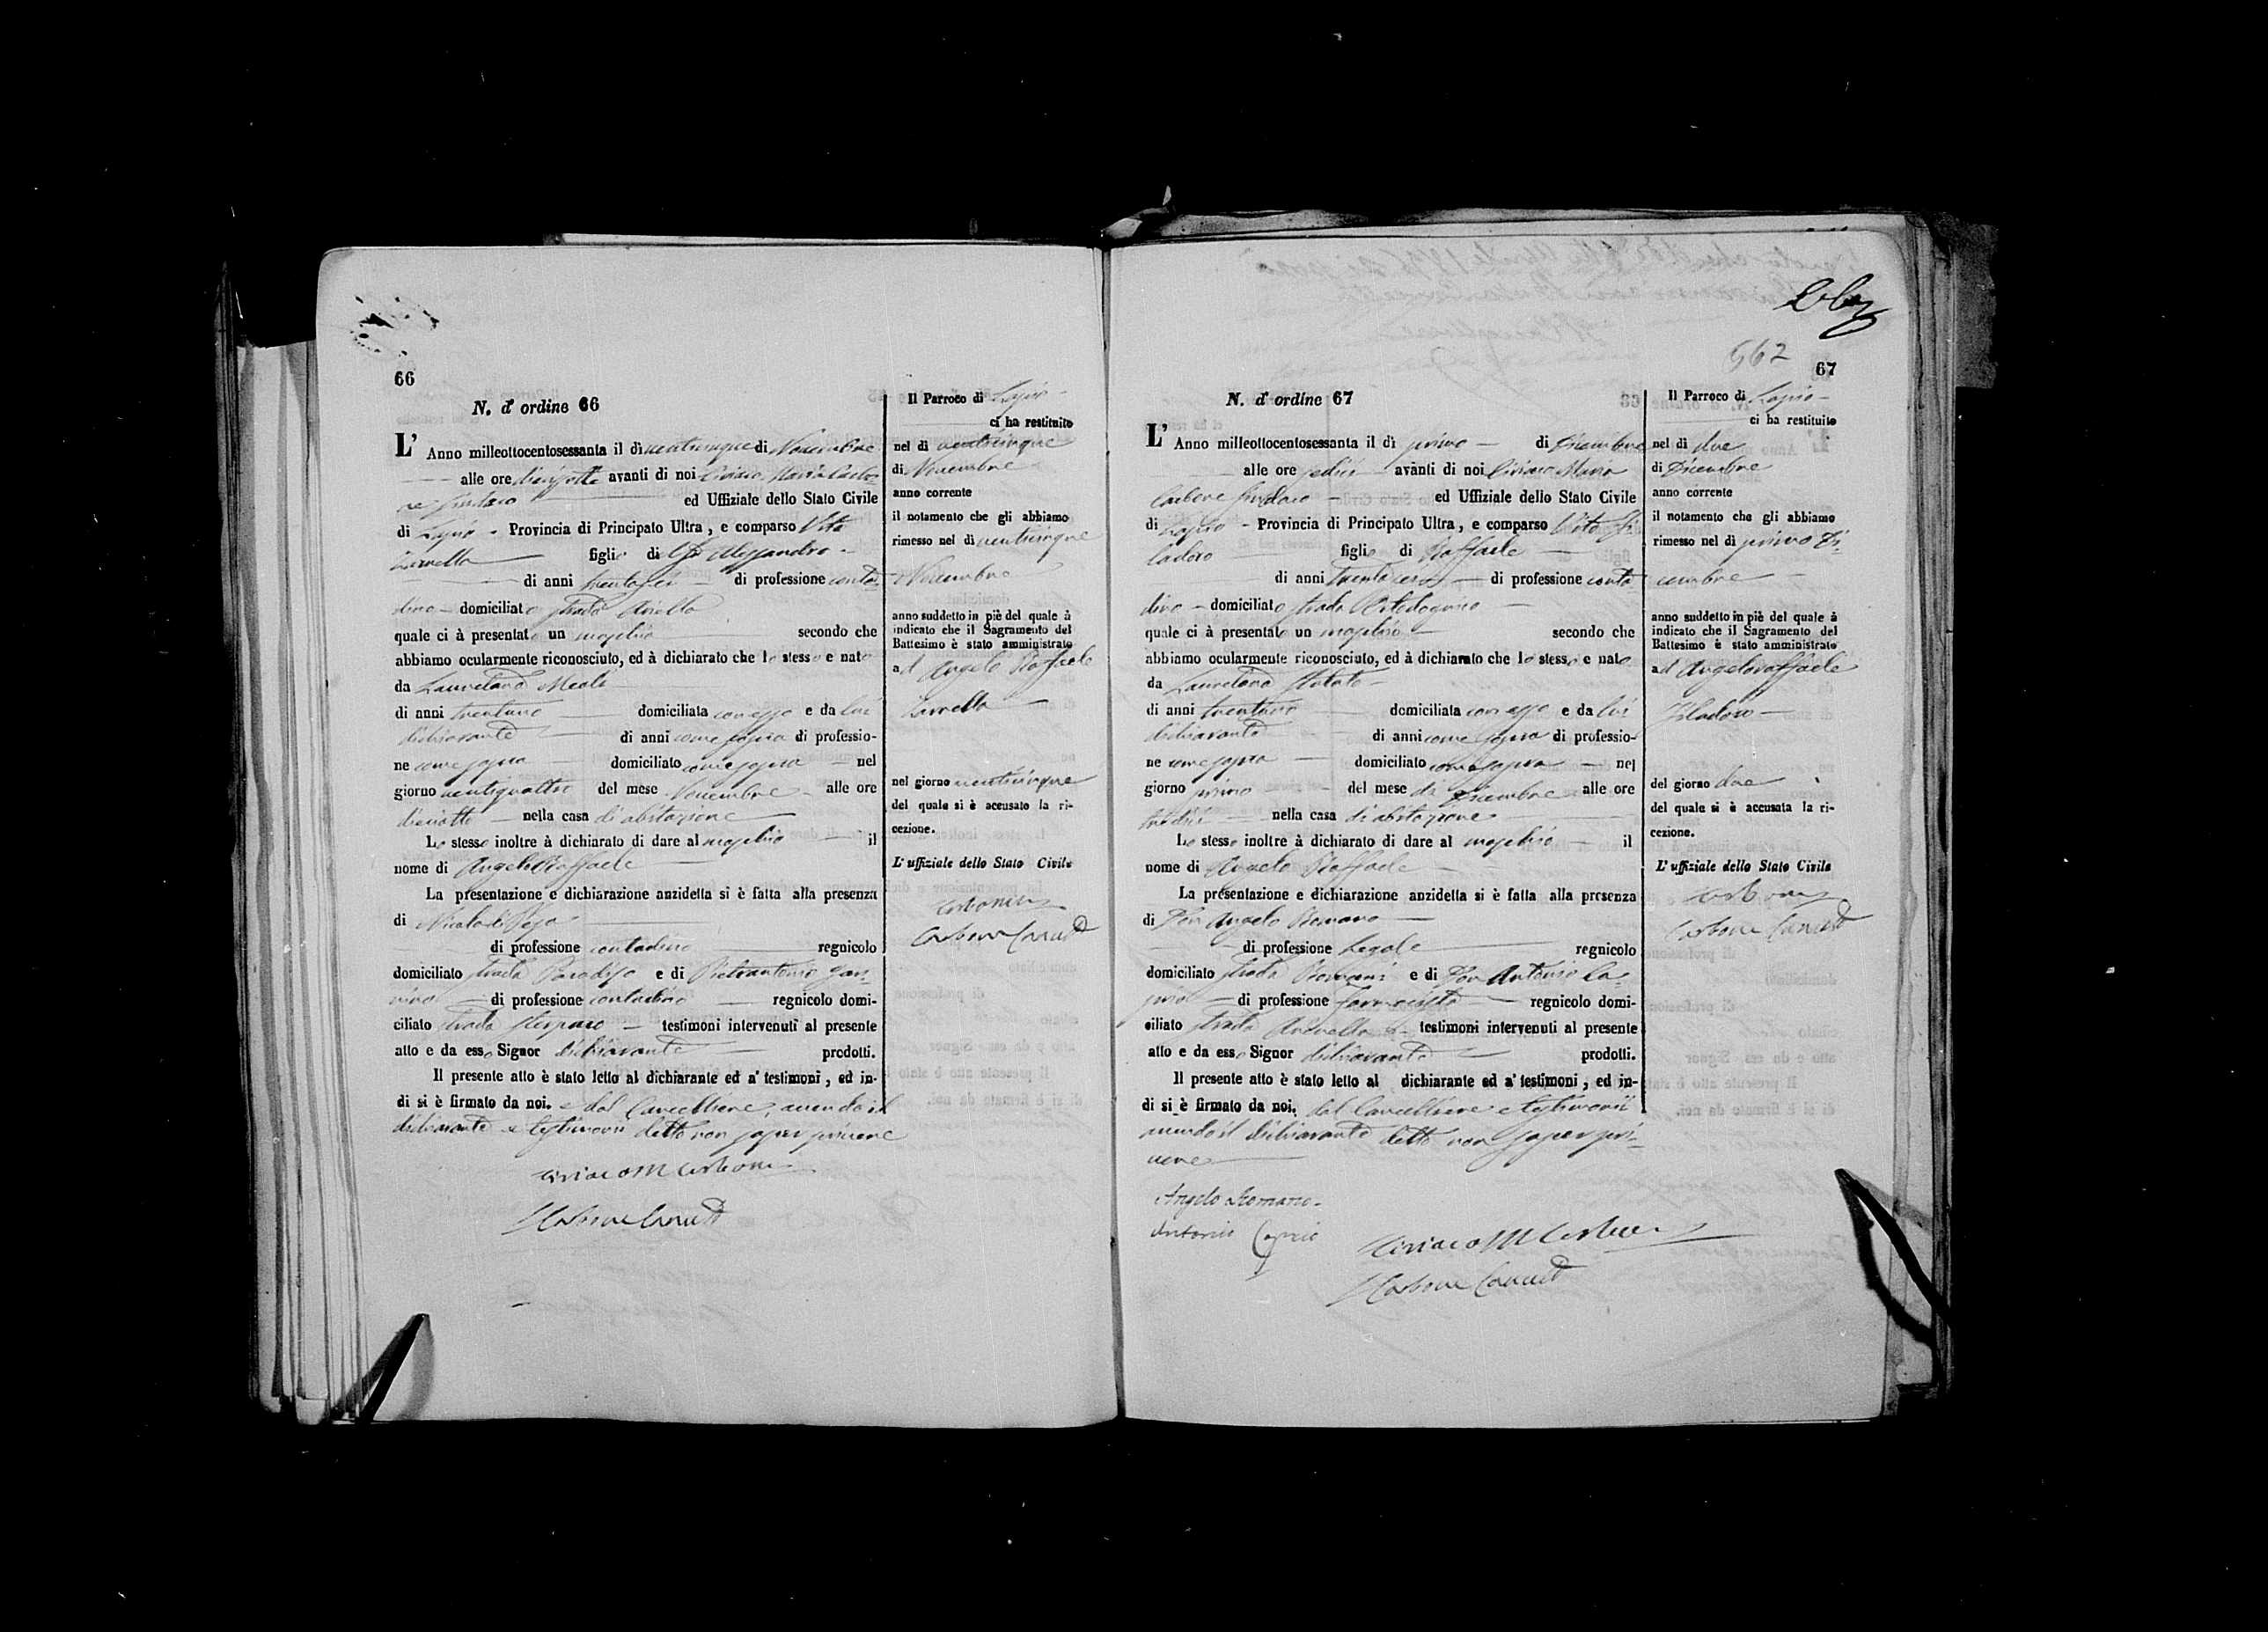 66
N. d' ordine 66
L' Anno milleottocentosessanta il dì venticinque di Novembre
alle ore diciotto avanti di noi Ciriaco Maria Carbo-
ne Sindaco ed Uffiziale dello Stato Civile
di Lapio - Provincia di Principato Ultra, e comparso Vito
figlio di Alessandro -
di anni trentasei di professione conta-
dino - domiciliato strada
quale ci à presentato un maschio secondo che
abbiamo ocularmente riconosciuto, ed à dichiarato che lo stesso e nato
da Lauretana
di anni trentuno domiciliata con esso e da lui
dichiarante di anni come sopra di professio-
ne come sopra domiciliato come sopra - nel
giorno ventiquattro del mese Novembre - alle ore
diciotto - nella casa di abitazione
Lo stesso inoltre à dichiarato di dare al maschio il
nome di Angelo Raffaele
La presentazione e dichiarazione anzidetta si è fatta alla presenza
di Nicola di
di professione contadino regnicolo
domiciliato strada Paradiso e di Pietrantonio
- di professione contadino regnicolo domi-
ciliato strada - testimoni intervenuti al presente
atto e da esso Signor dichiarante prodotti.
Il presente atto è stato letto al dichiarante ed a' testimoni, ed in-
di si è firmato da noi. e dal Cancelliere, avendo il
dichiarante e testimonii detto non saper scrivere
Ciriaco M Carbone
Carbone
Il Parroco di Lapio -
ci ha restituito
nel dì venticinque
di Novembre
anno corrente
il notamento che gli abbiamo
rimesso nel dì venticinque
Novembre
anno suddetto in piè del quale à
indicato che il Sagramento del
Battesimo è stato amministrato
ad Angelo Raffaele
nel giorno venticinque
del quale si è accusato la ri-
cezione.
L' uffiziale dello Stato Civile
Carbone
Carbone
562
67
N. d' ordine 67
L' Anno milleottocentosessanta il dì primo - di Dicembre
alle ore sedici avanti di noi Ciriaco Maria
Carbone Sindaco - ed Uffiziale dello Stato Civile
di Lapio - Provincia di Principato Ultra, e comparso Vito Fi-
ladoro figlio di Raffaele
di anni trenta - di professione conta-
dino - domiciliato strada
quale ci à presentato un maschio - secondo che
abbiamo ocularmente riconosciuto, ed à dichiarato che lo stesso e nato
da Lauretana
di anni trentuno domiciliata con esso e da lui
dichiarante di anni come sopra di professio-
ne come sopra - domiciliato come sopra - nel
giorno primo del mese di Dicembre alle ore
tredici nella casa di abitazione
Lo stesso inoltre à dichiarato di dare al maschio - il
nome di Angelo Raffaele
La présentazione e dichiarazione anzidetta si è fatta alla presenza
di Don Angelo Romano
di professione Legale regnicolo
domiciliato strada Romani e di Don Antonio Ca-
prio - di professione farmacista regnicolo domi-
ciliato strada testimoni intervenuti al presente
atto e da esso Signor dichiarante prodotti.
Il presente atto è stato letto al dichiarante ed a' testimoni, ed in-
di si è firmato da noi. dal Cancelliere e testimonii
avendo il dichiarante detto non saper scri-
vere
Angelo Romano
Antonio Caprio
Ciriaco M Carbone
Carbone
Il Parroco di Lapio -
ci ha restituito
nel dì due
di Dicembre
anno corrente
il notamento che gli abbiamo
rimesso nel dì primo Di-
cembre
anno suddetto in piè del quale à
indicato che il Sagramento del
Battesimo è stato amministrato
ad Angeloraffaele
Filadoro -
del giorno due
del quale si è accusata la ri-
cezione.
L' uffiziale dello Stato Civile
Carbone
Carbone